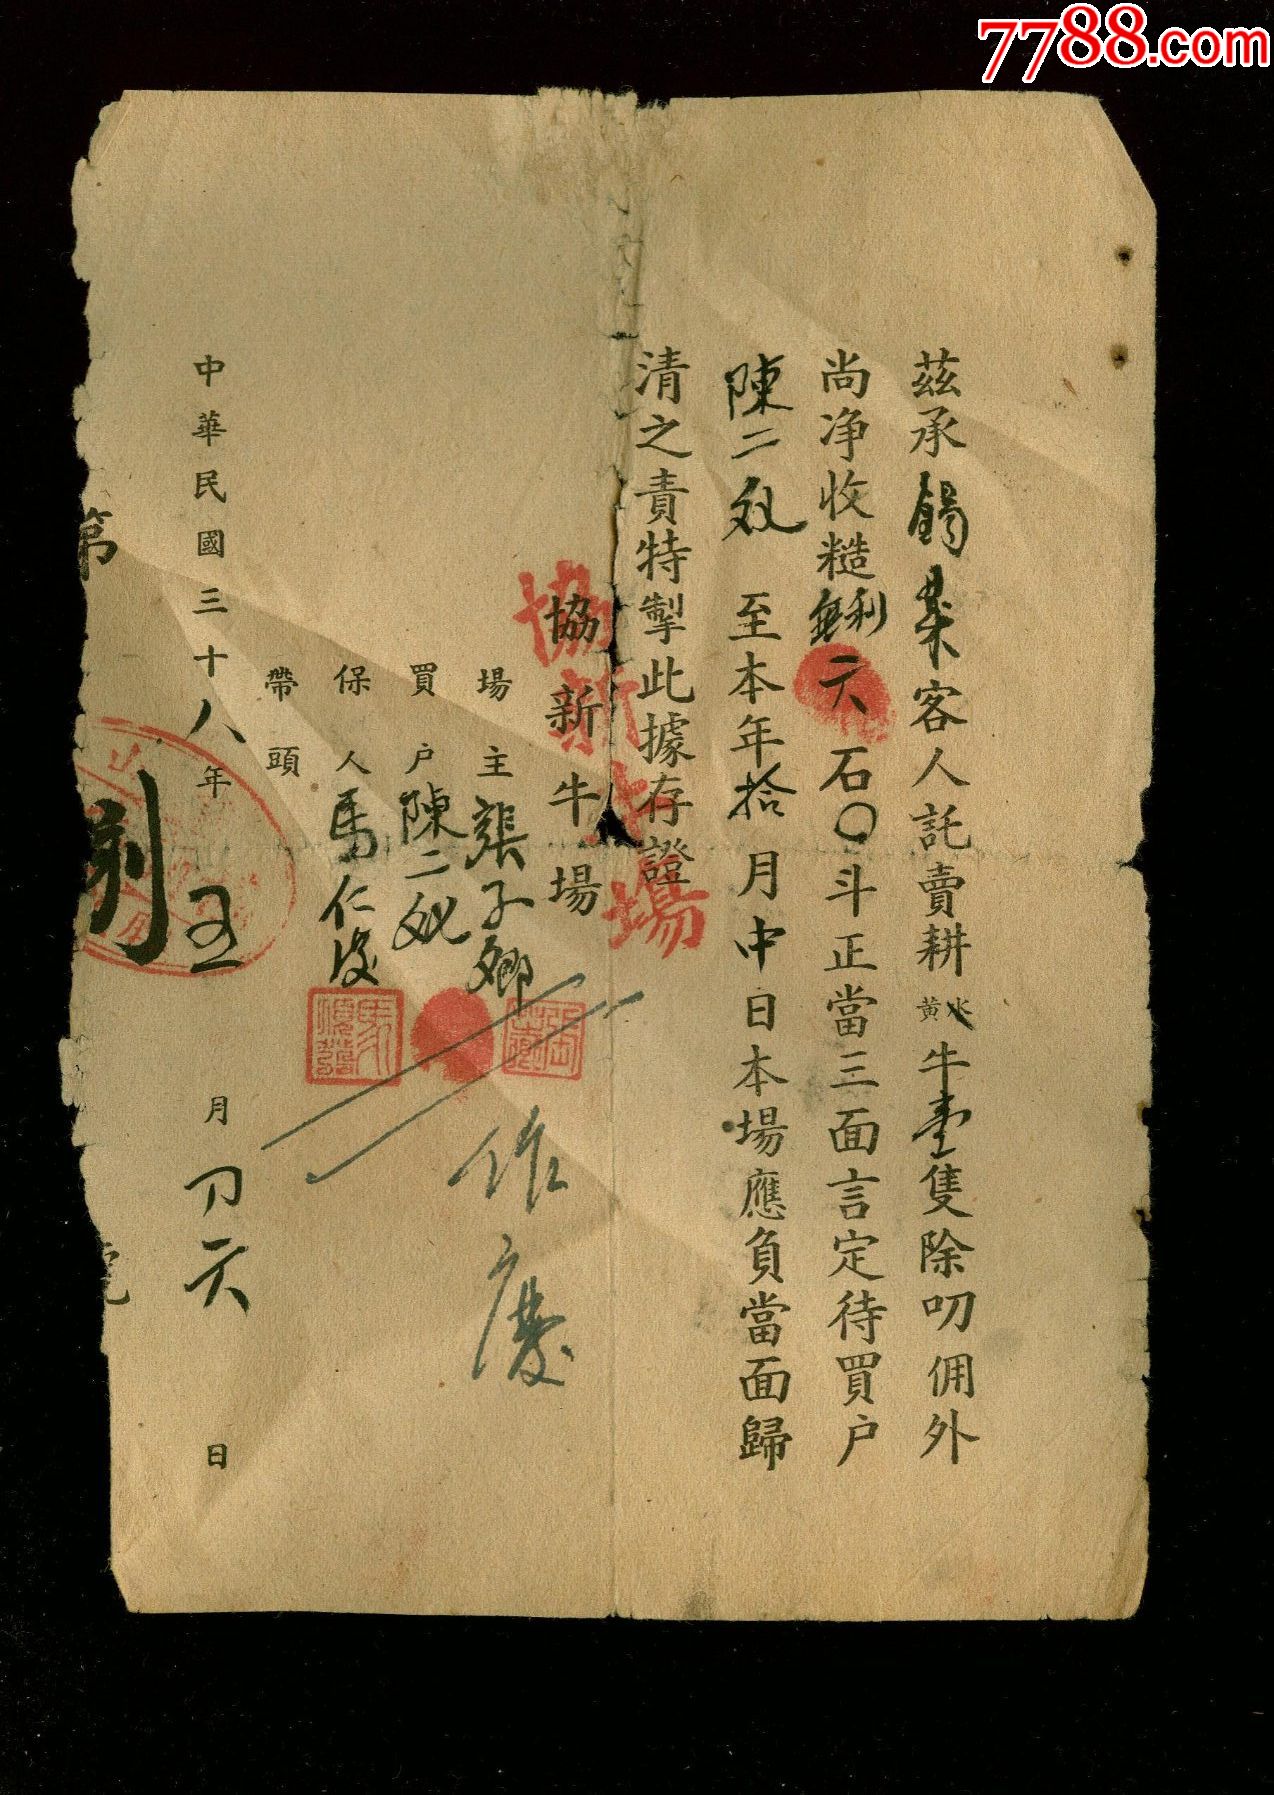 7788.com
茲承錫業客人託賣耕水黃牛壹隻除叨佣外
尚净收糙無利六石〇斗正當三面言定待買户
陳二 至本年拾月中日本場應負當面歸
清之責特掣此據存證
協新牛場
協新牛場
場主張子卿
買户陳二
保人馬仁
帶頭
作廢
中華民國三十八年五月刀六日
第
號